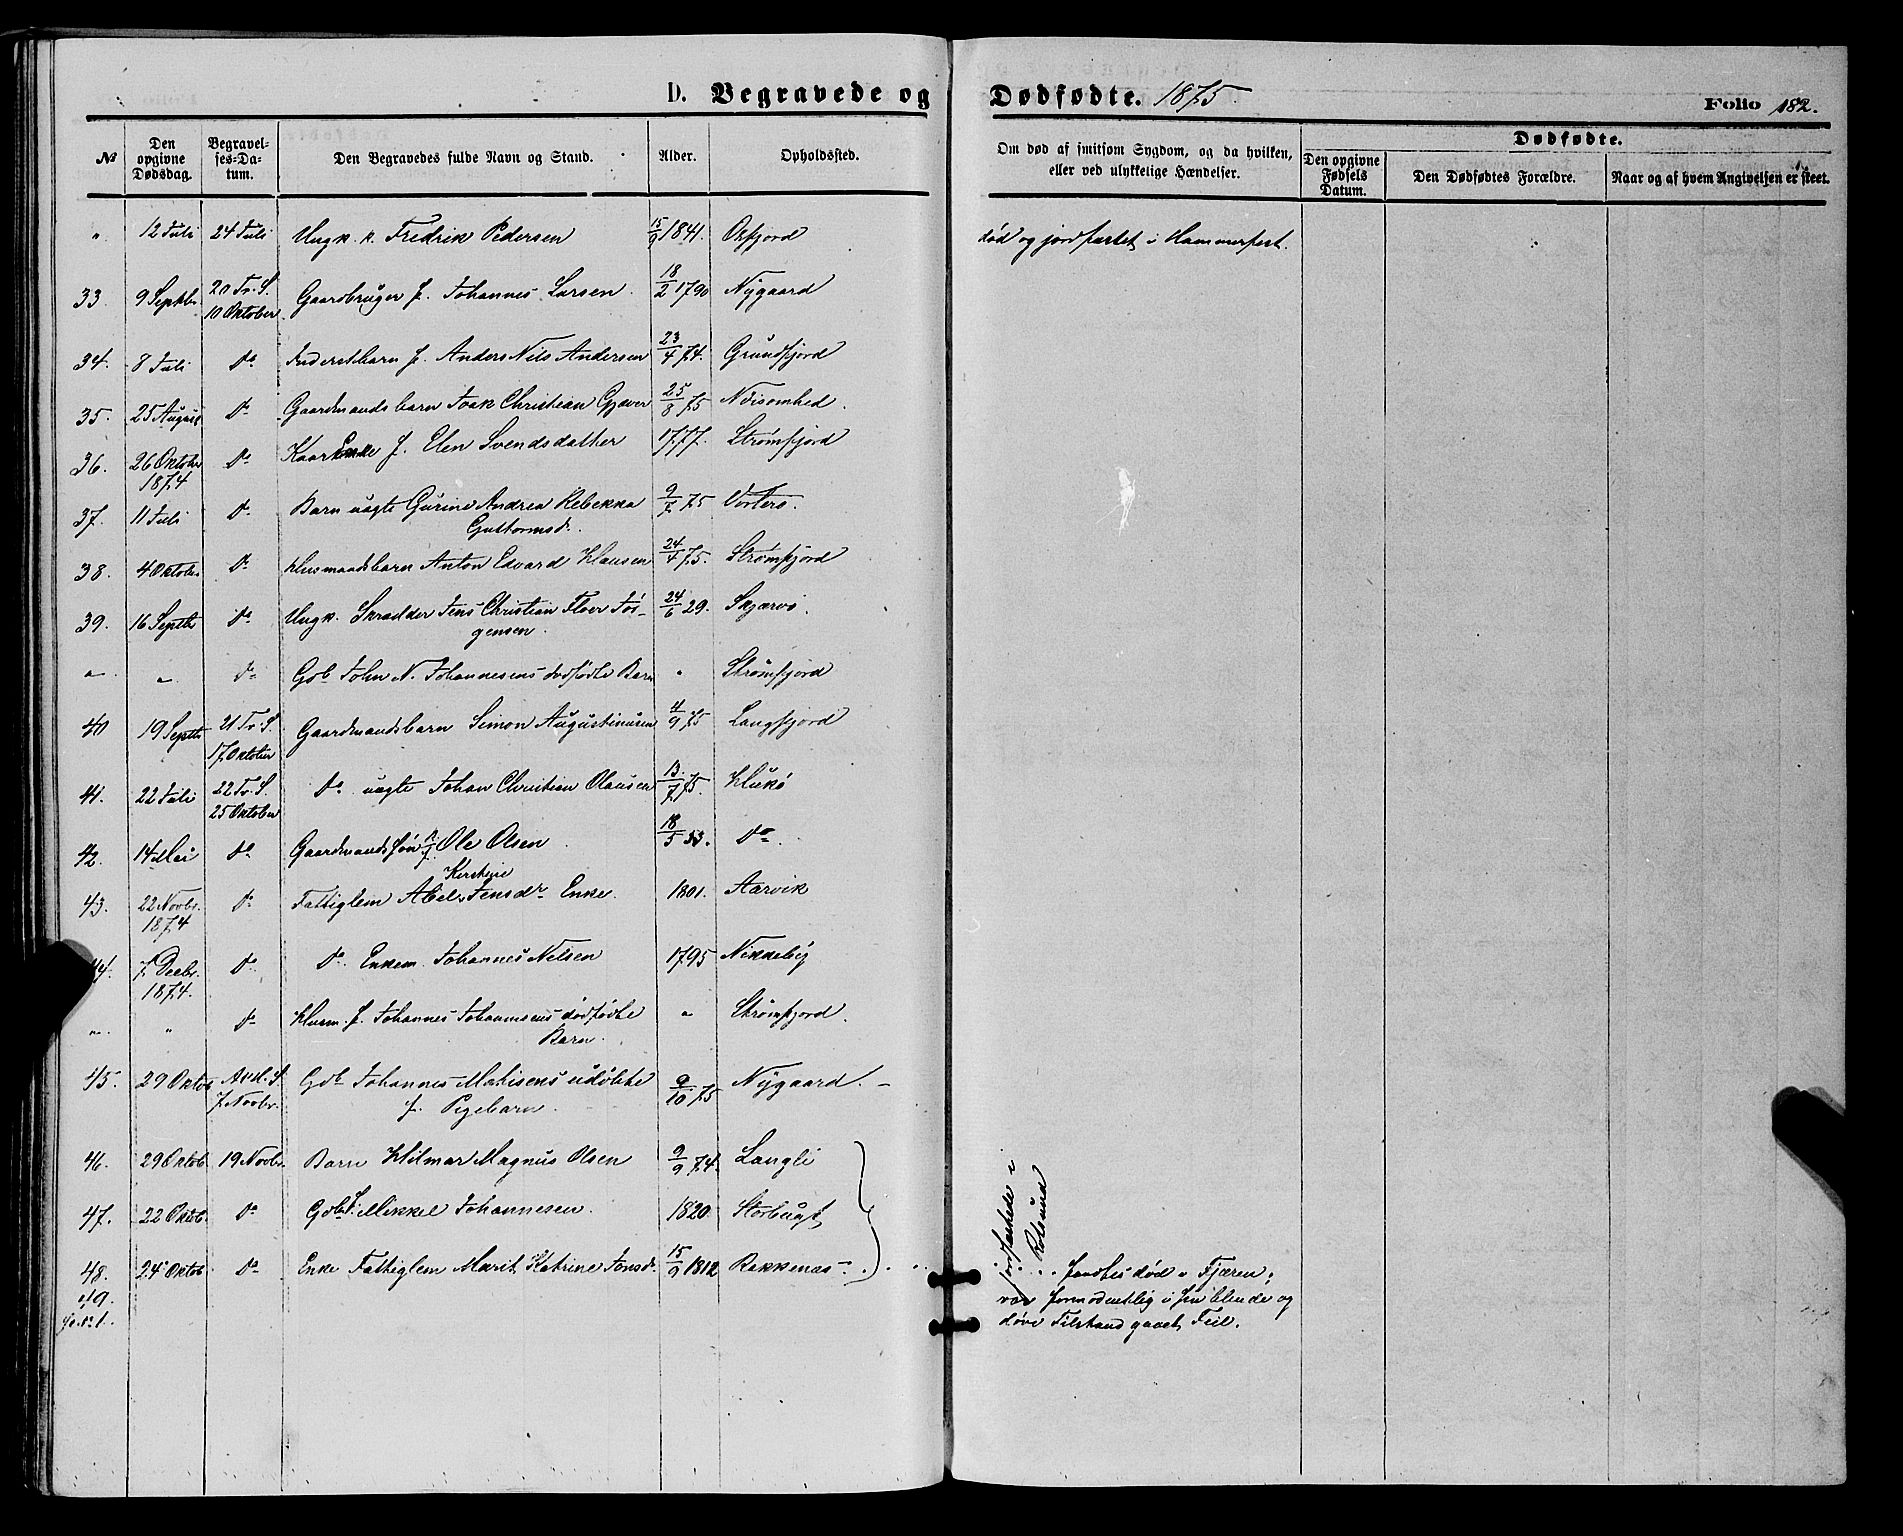 D. Begravede og Dødfødte. 1875.
Folio 182.
№
Den opgivne Dødsdag.
Begravelses-Datum.
Den Begravedes fulde Navn og Stand.
Alder.
Opholdssted.
Om død af smitsom Sygdom, og da hvilken, eller ved ulykkelige Hændelser.
Dødfødte.
Den opgivne Fødsels Datum.
Den Dødfødtes Forældre.
Naar og af hvem Angivelsen er skeet.
" 12 Juli 24 Juli Ungk. k. Fredrik Pedersen 15/9 1841. Oxfjord død og jordfæstet i Hammerfest.
33. 9 Septbr. 20 Tr. S. Gaardbruger f. Johannes Larsen 18/2 1790 Nygaard
10 Oktober
34. 8 Juli Do Inderstbarn f. Anders Nils Andersen 23/4 74. Grundfjord
35. 25 August Do Gaardmandsbarn Isak Christian Gjæver 25/8 75 Nøisomhed.
36. 26 Oktober Do Kaarenke f. Elen Svendsdatter 1777. Strømfjord
1874
37. 11 Juli Do Barn uægte Gurine Andrea Rebekka 9/7 75 Vorterø.
Guttormsd.
38. 4 Oktober Do Husmandsbarn Anton Edvard Klausen 24/4 75. Strømfjord
39. 16 Septbr Do Ungk. Skrædder Jens Christian Floer Jör- 24/6 29. Skjærvø.
gensen.
" " Do Gdb John N. Johannesens dødfødte Barn " Strømfjord
40 19 Septbr 21 Tr. S. Gaardmandsbarn Simon Augustinusen 4/9 75 Langfjord
17 Oktober
41. 22 Juli 22 Tr. S. Do uægte Johan Christian Olausen 13/7 75. Hukø
25 Oktober
42. 14 Mai Do Gaardmandssøn Ole Olsen 18/5 53. Do
Kirstine
43. 22 Novbr. Do Fattiglem Abel Jensdr Enke. 1801. Aarvik
1874
44. 7 Decbr. Do Do Enkem. Johannes Nilsen 1795 Nikkeby
1874.
" " Do Husm. f. Johannes Johannesens dødfødte " Strømfjord.
Barn.
45. 29 Oktob Avel. S. Gdb Johannes Mathisens udøbte 9/10 75 Nygaard.
7 Novbr. f. Pigebarn.
46. 29 Oktob. 19 Novbr. Barn Hilmar Magnus Olsen 9/9 74. Langli
47. 22 Oktob. Do Gdb. Mikkel Johannesen. 1820. Storbugt
48. 24 Oktob Do Enke Fattiglem Marit Katrine Jonsdr. 15/9 1812 Bakkenæs
jordfæstede i
Rotsund
fandtes død i Fjæren;
49.
var formodentlig i sin blinde og
døve Tilstand gaaet Feil.